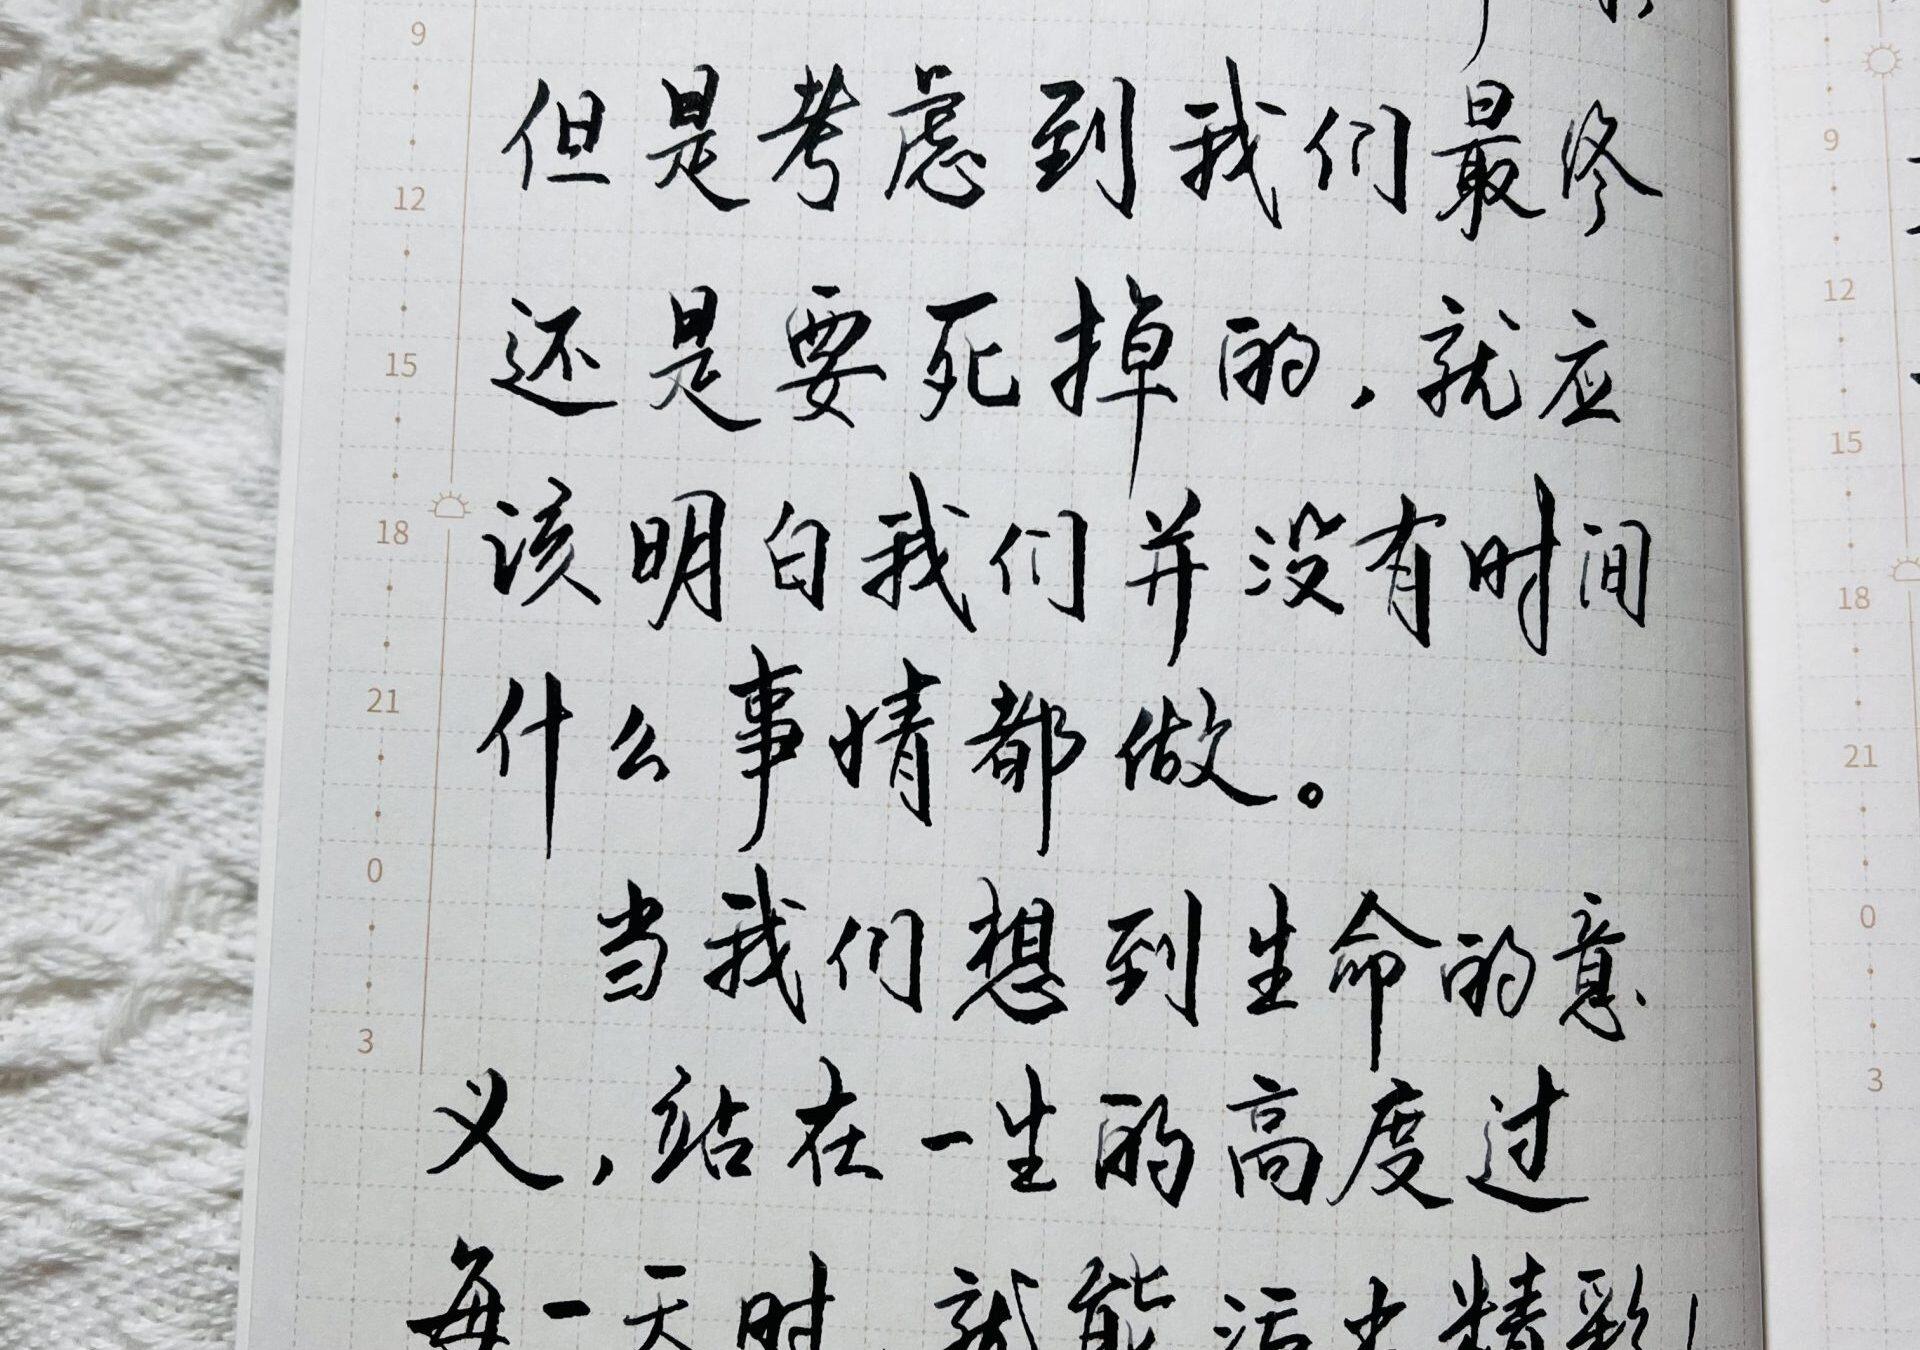 但是考虑到我们最终
还是要死掉的，就应
该明白我们并没有时间
什么事情都做。
当我们想到生命的意
义，站在一生的高度过
每一天时，就能活出精彩！
9
12
15
18
21
0
3
9
12
15
18
21
0
3